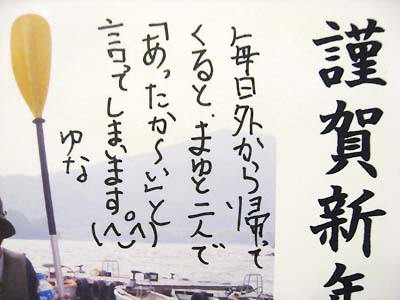 謹賀新年
毎日外から帰って
くると、まゆと二人で
「あったか〜い」と
言ってしまいます。(^^)
ゆな